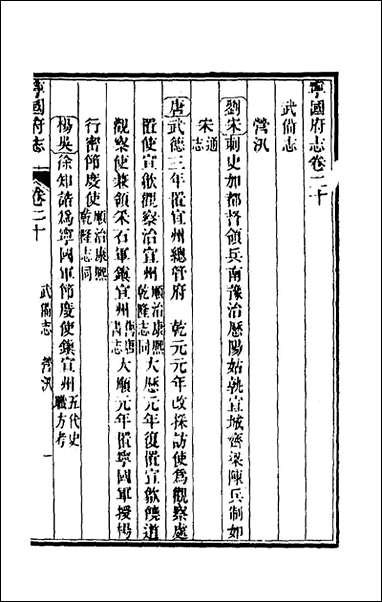 寧國府志卷二十
武備志
營汛
劉宋刺史加都督領兵南豫治歷陽姑孰宣城齊梁陳兵制如
宋通志
唐武德三年置宣州總管府 乾元元年改採訪使為觀察處
置使宣歙觀察治宣州順治康熙乾隆志同大歷元年復置宣歙饒道
觀察使兼領采石軍鎮宣州舊唐書志大順元年置寧國軍授楊
行密節度使順治康熙乾隆志同
楊吳徐知誥為寧國軍節度使鎮宣州五代史職方考
寧國府志 卷二十 武備志 營汛 一